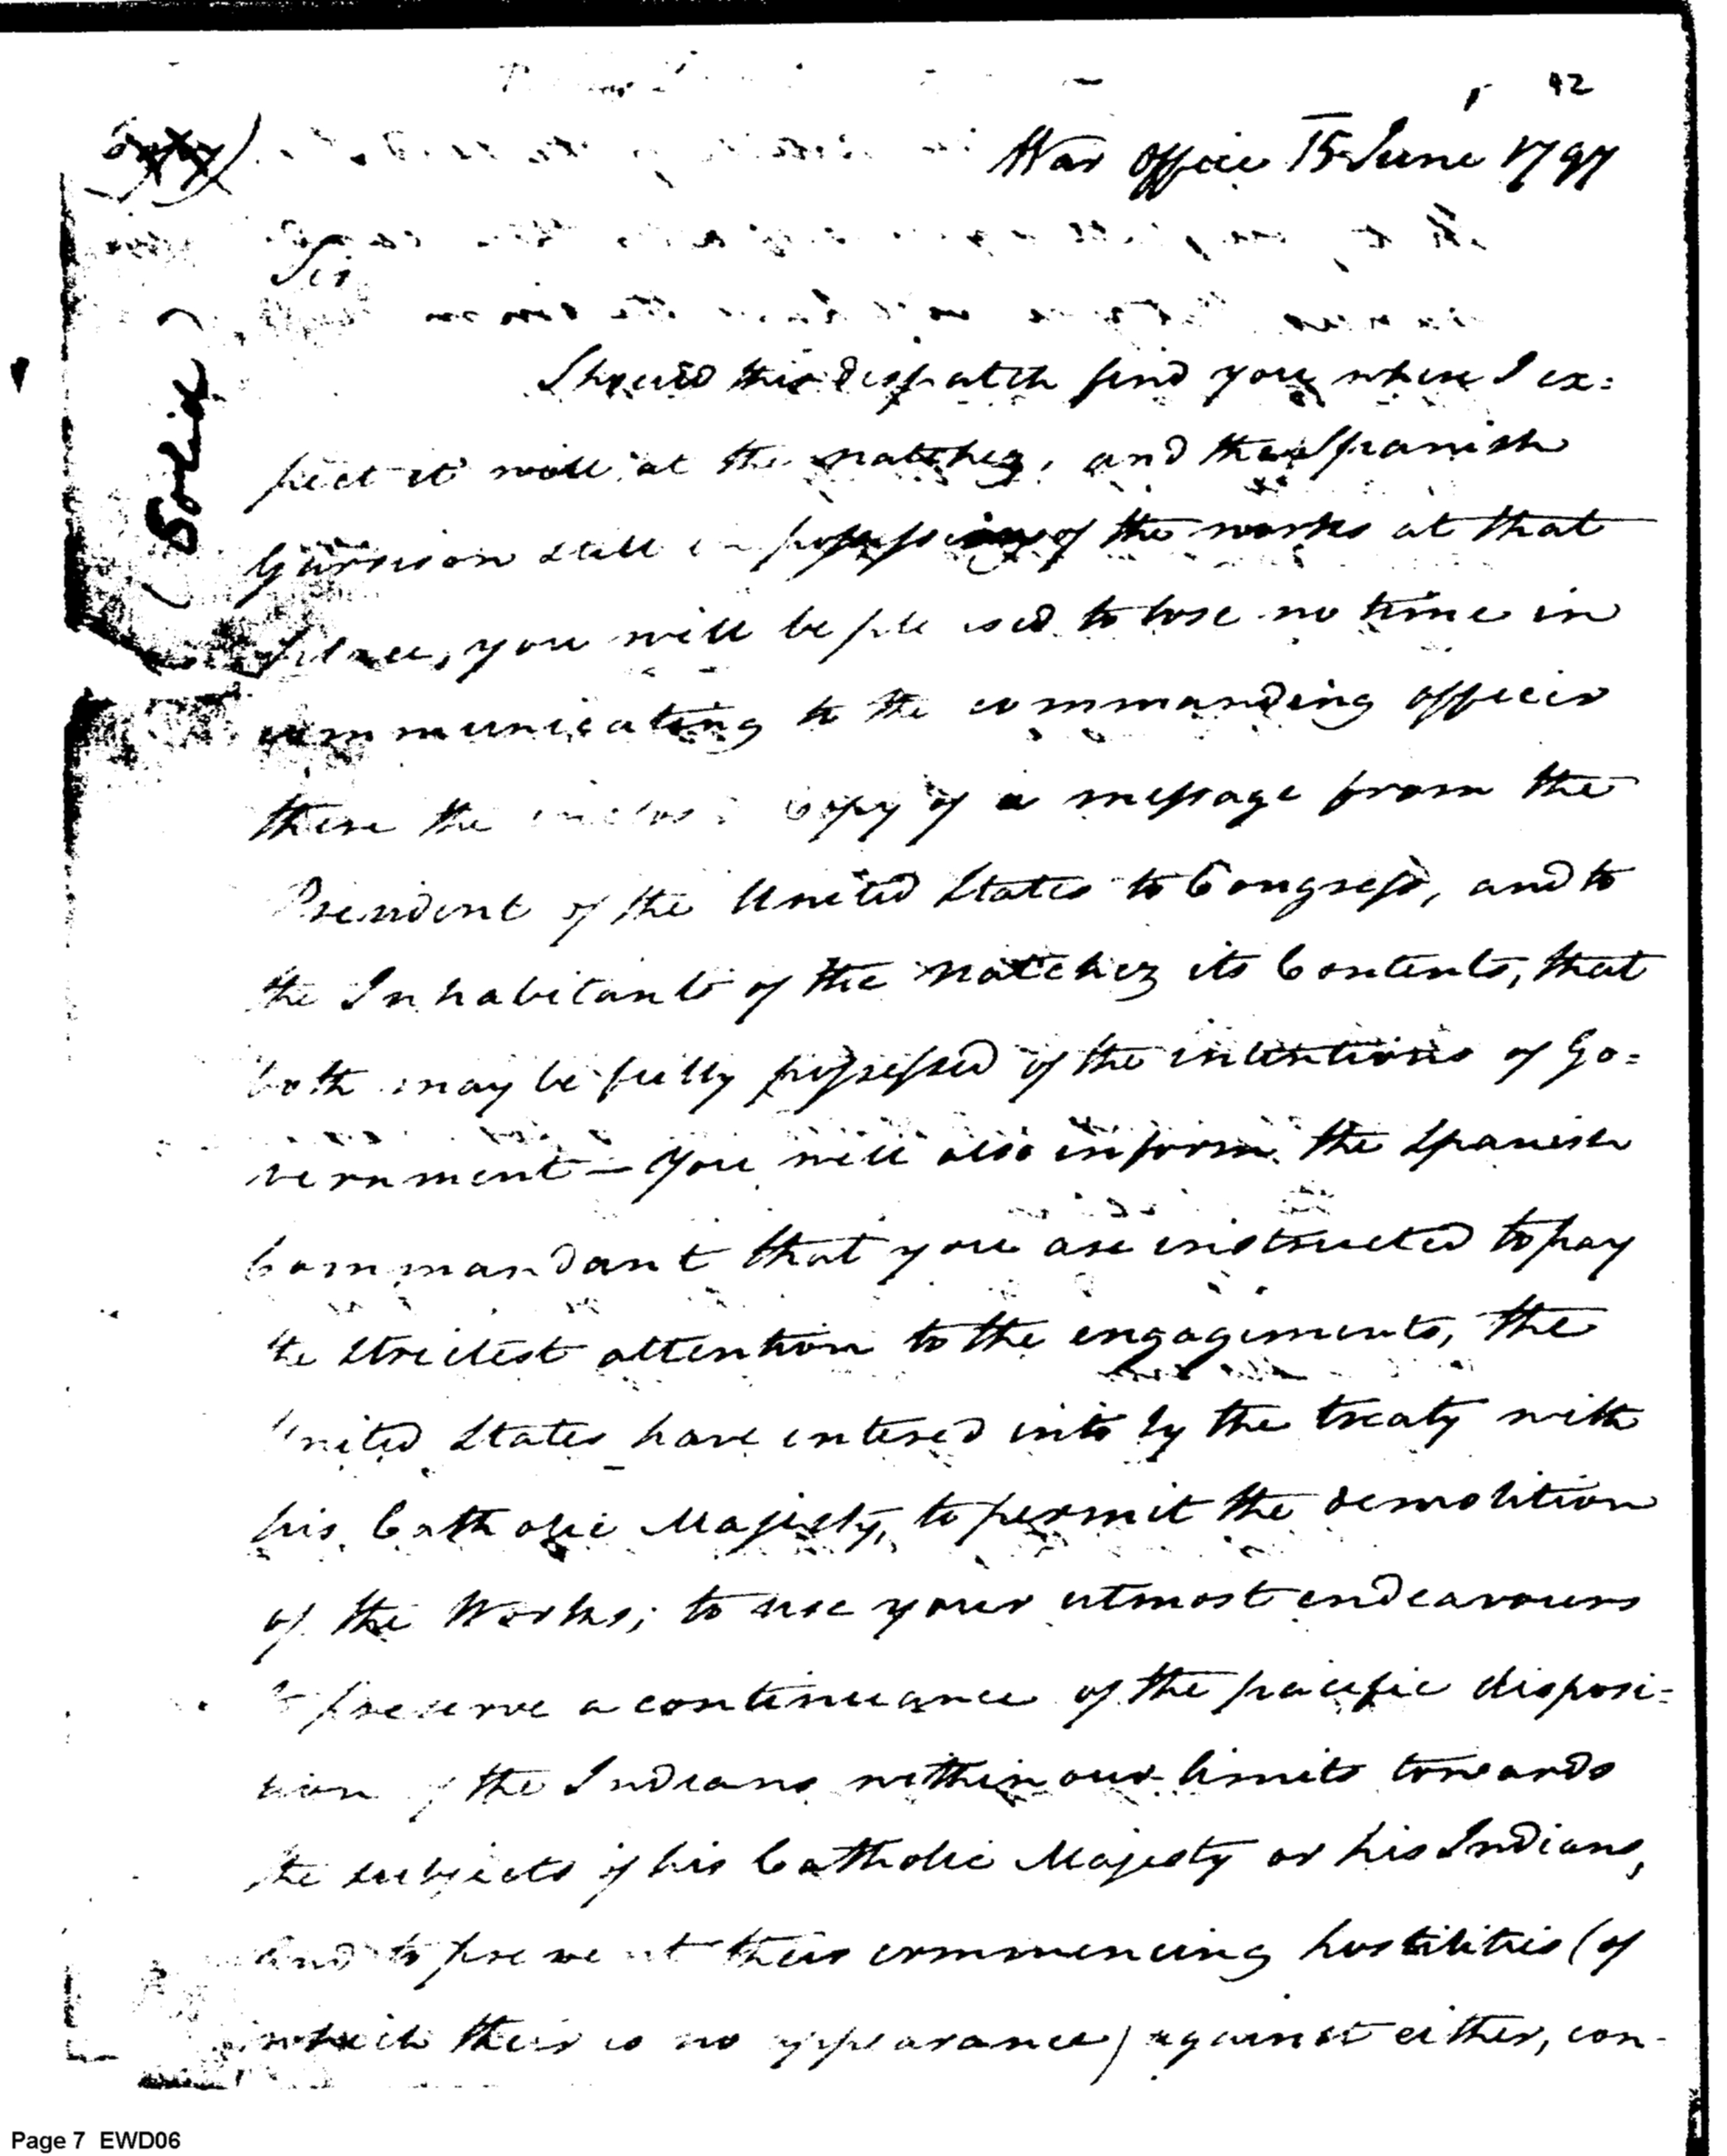 42
War Office 15 June 1797
Sir
Should this dispatch find you where I ex=
pect it will at the Natchez, and the Spanish
Garrison still in possession of the works at that
place, you will be pleased to lose no time in
communicating to the commanding officer
there the inclosed Copy of a message from the
President of the United States to Congress, and to
the Inhabitants of the Natchez its Contents, that
both may be fully possessed of the intentions of Go=
vernment — You will also inform the Spanish
Commandant that you are instructed to pay
the strictest attention to the engagements, the
United States have entered into by the treaty with
his Catholic Majesty, to permit the demolition
of the Works; to use your utmost endeavours
to preserve a continuance of the pacific disposi=
tion of the Indians within our limits towards
the subjects of his Catholic Majesty or his Indians,
and to prevent their commencing hostilities (of
which their is no appearance) against either, con-
Page 7 EWD06